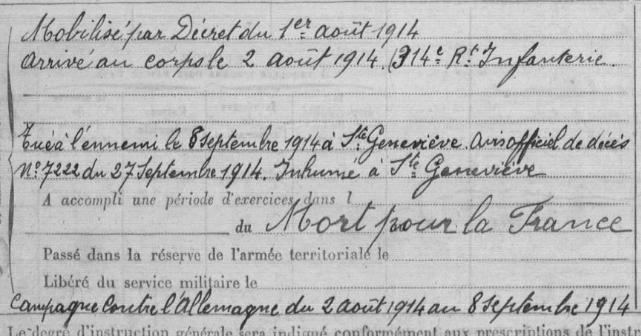 Mobilisé par Décret du 1er août 1914
Arrivé au corps le 2 août 1914 (314e Rt Infanterie.
Tué à l'ennemi le 8 Septembre 1914 à Ste Geneviève. avis officiel de décés
No 7222 du 27 Septembre 1914. Inhumé à Ste Geneviève
A accompli une période d'exercices dans l
du Mort pour la France
Passé dans la réserve de l'armée territoriale le
Libéré du service militaire le
Campagne contre l'Allemagne du 2 août 1914 au 8 Septembre 1914
Le degré d'instruction générale sera indiqué conformément aux prescriptions de l'inst